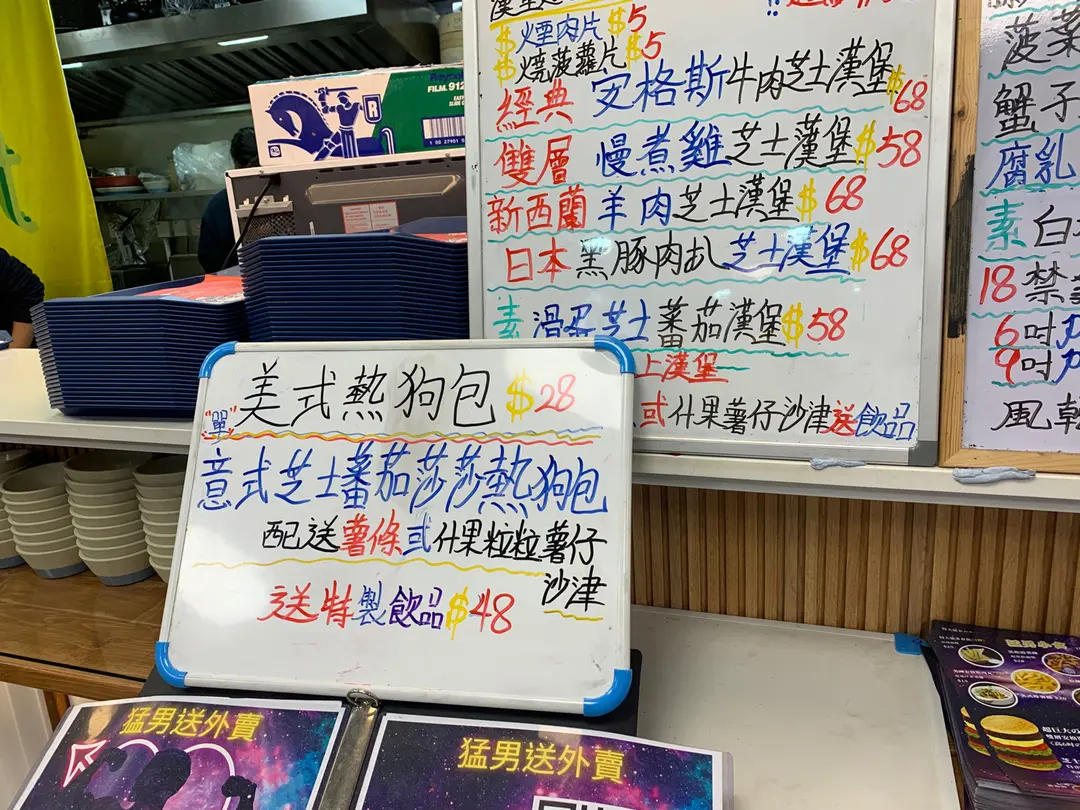 煙肉片 $5
燒菠蘿片 $5
經典 安格斯牛肉芝士漢堡 $68
雙層 慢煮雞芝士漢堡 $58
新西蘭 羊肉芝士漢堡 $68
日本 黑豚肉扒芝士漢堡 $68
素 滑蛋芝士蕃茄漢堡 $58
上漢堡
或什果薯仔沙津送飲品
菠菜
蟹子
腐乳
素 白
18 禁
6吋
9吋
風乾
FILM 912
"單" 美式熱狗包 $28
意式芝士蕃茄莎莎熱狗包
配送薯條或什果粒粒薯仔
沙津
送特製飲品 $48
猛男送外賣
猛男送外賣